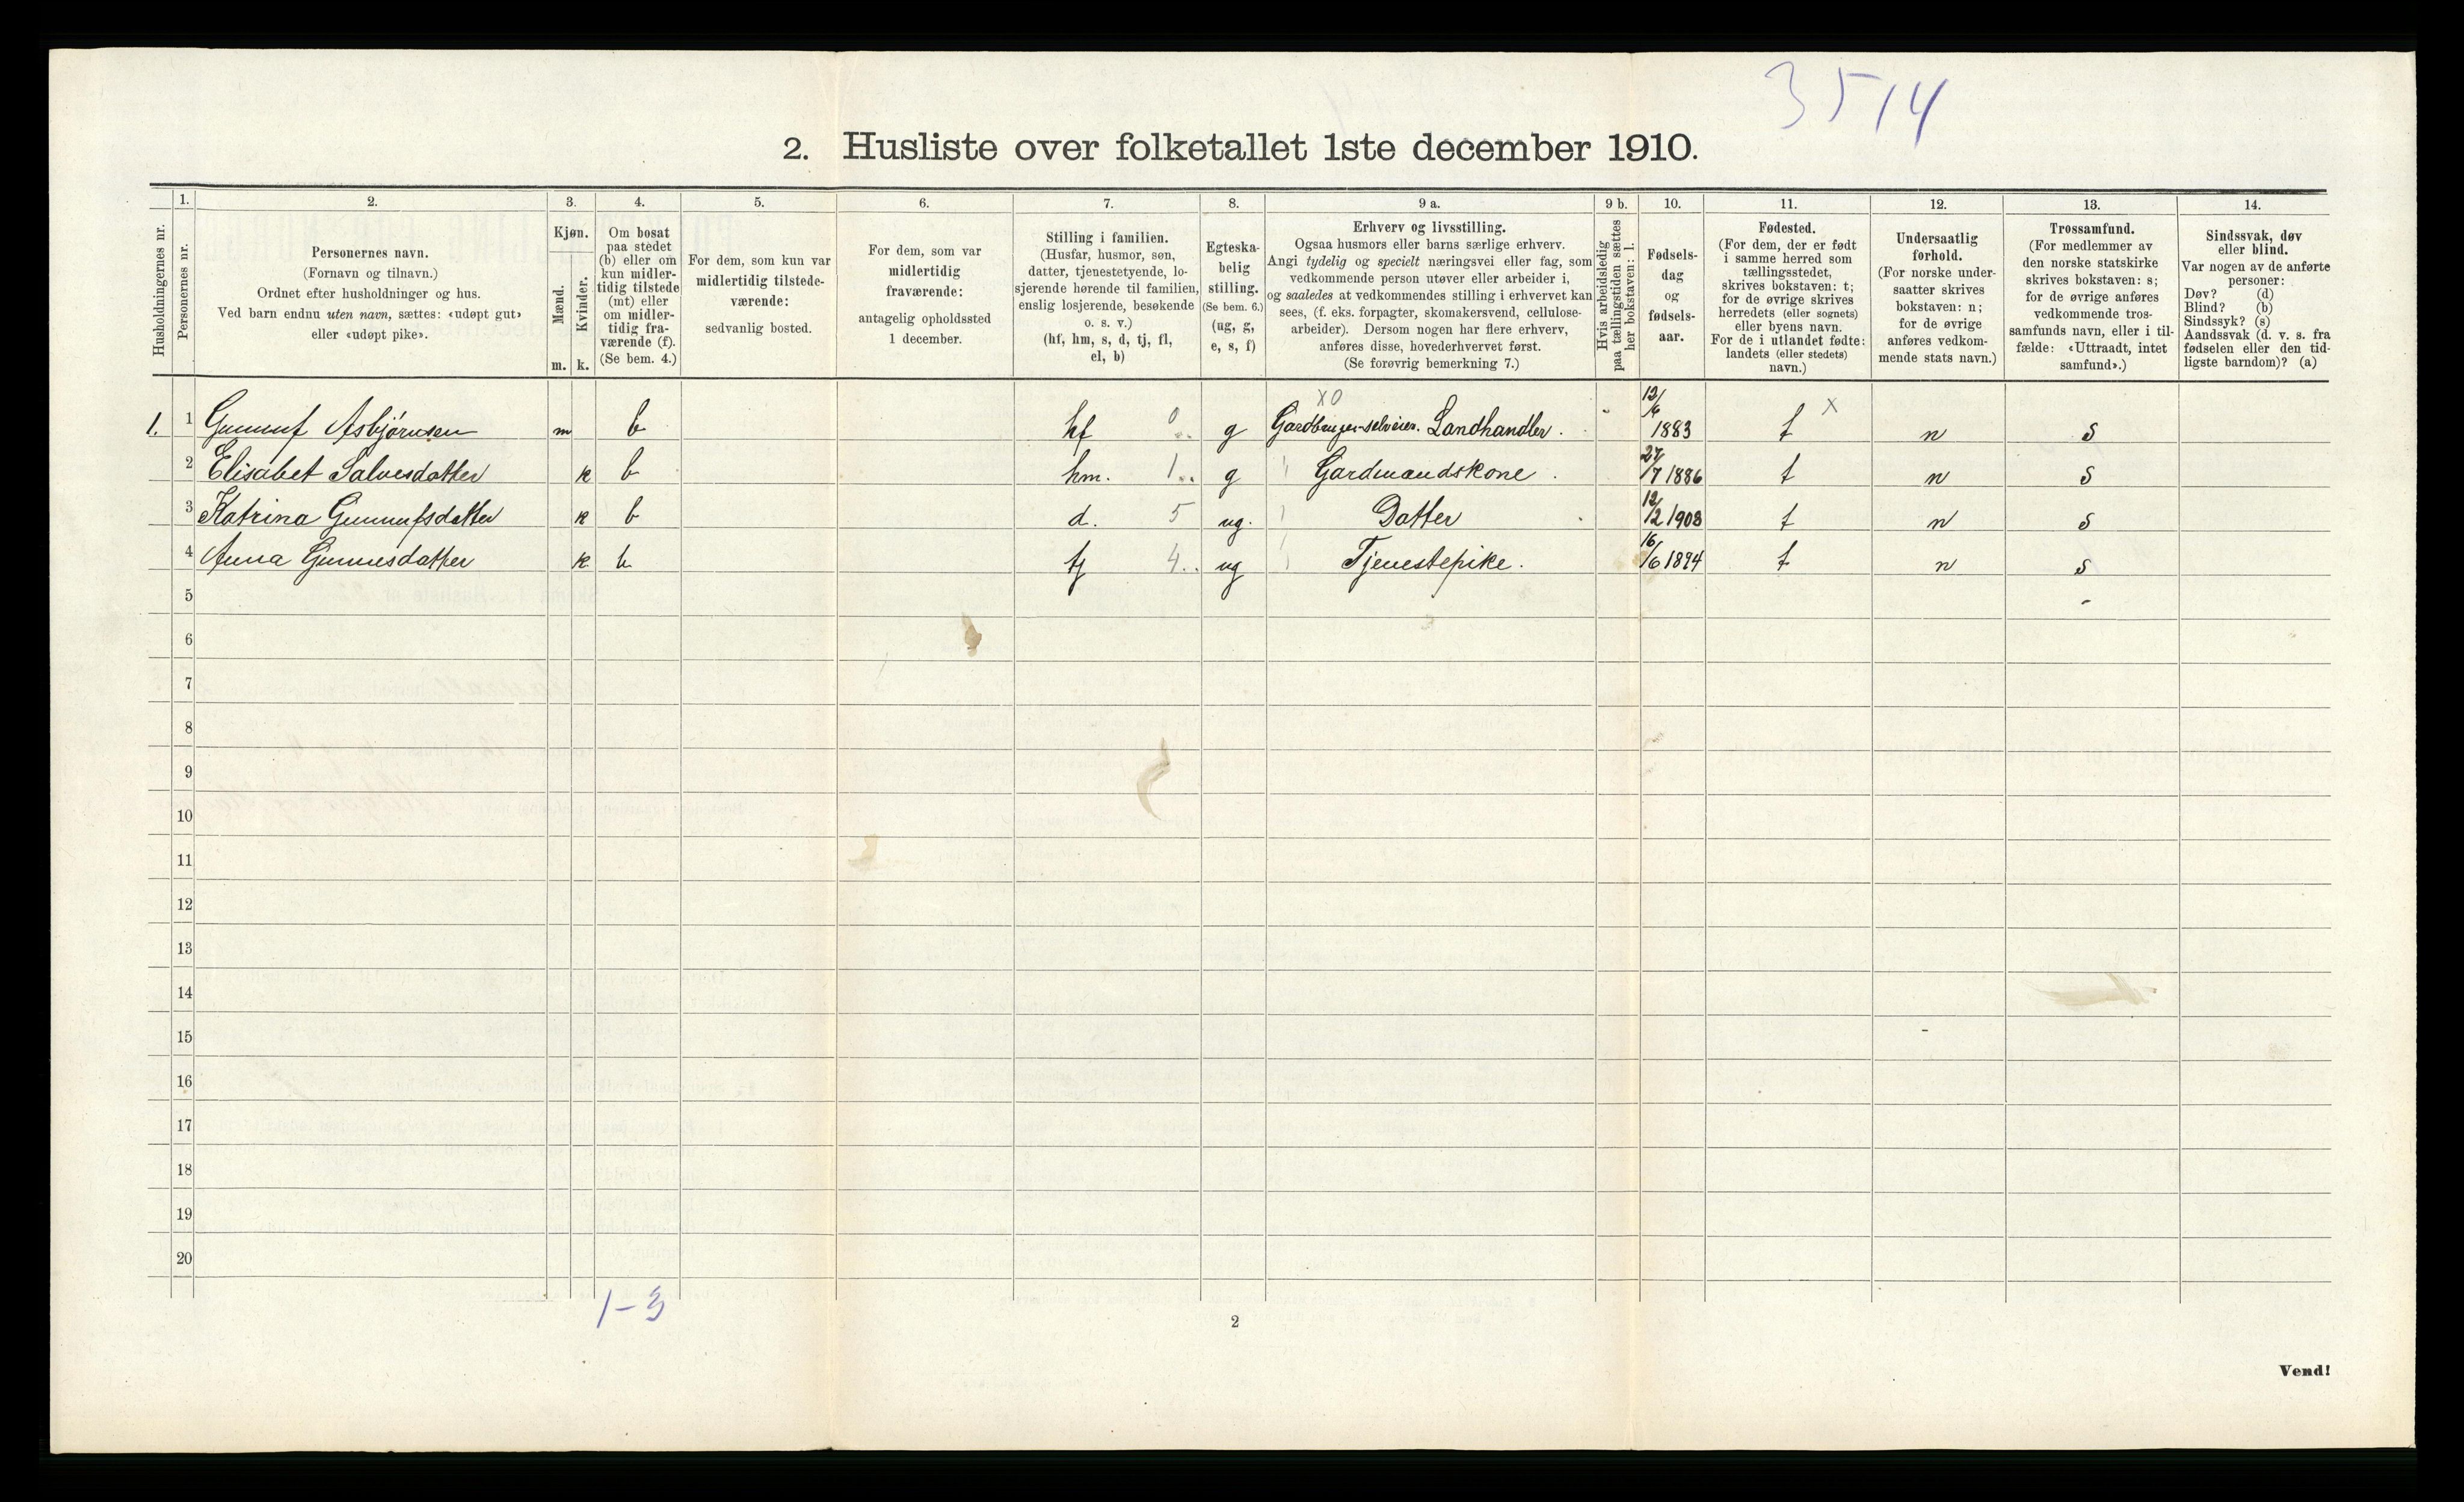 3514
2. Husliste over folketallet 1ste december 1910.
Husholdningernes nr.
1.
Personernes nr.
2.
Personernes navn.
(Fornavn og tilnavn.)
Ordnet efter husholdninger og hus.
Ved barn endnu uten navn, sættes: «udøpt gut»
eller «udøpt pike».
3.
Kjøn.
Mænd.
Kvinder.
m. k.
4.
Om bosat
paa stedet
(b) eller om
kun midler-
tidig tilstede
(mt) eller
om midler-
tidig fra-
værende (f).
(Se bem. 4.)
5.
For dem, som kun var
midlertidig tilstede-
værende:
sedvanlig bosted.
6.
For dem, som var
midlertidig
fraværende:
antagelig opholdssted
1 december.
7.
Stilling i familien.
(Husfar, husmor, søn,
datter, tjenestetyende, lo-
sjerende hørende til familien,
enslig losjerende, besøkende
o. s. v.)
(hf, hm, s, d, tj, fl,
el, b)
8.
Egteska-
belig
stilling.
(Se bem. 6.)
(ug, g,
e, s, f)
9 a.
Erhverv og livsstilling.
Ogsaa husmors eller barns særlige erhverv.
Angi tydelig og specielt næringsvei eller fag, som
vedkommende person utøver eller arbeider i,
og saaledes at vedkommendes stilling i erhvervet kan
sees, (f. eks. forpagter, skomakersvend, cellulose-
arbeider). Dersom nogen har flere erhverv,
anføres disse, hovederhvervet først.
(Se forøvrig bemerkning 7.)
9 b.
Hvis arbeidsledig
paa tællingstiden sættes
her bokstaven: l.
10.
Fødsels-
dag
og
fødsels-
aar.
11.
Fødested.
(For dem, der er født
i samme herred som
tællingsstedet,
skrives bokstaven: t;
for de øvrige skrives
herredets (eller sognets)
eller byens navn.
For de i utlandet fødte:
landets (eller stedets)
navn.)
12.
Undersaatlig
forhold.
(For norske under-
saatter skrives
bokstaven: n;
for de øvrige
anføres vedkom-
mende stats navn.)
13.
Trossamfund.
(For medlemmer av
den norske statskirke
skrives bokstaven: s;
for de øvrige anføres
vedkommende tros-
samfunds navn, eller i til-
fælde: «Uttraadt, intet
samfund».)
14.
Sindssvak, døv
eller blind.
Var nogen av de anførte
personer:
Døv? (d)
Blind? (b)
Sindssyk? (s)
Aandssvak (d. v. s. fra
fødselen eller den tid-
ligste barndom)? (a)
1. 1 Gunnuf Asbjørnsen m b hf 0.. g X0 Gardbruger-selveier. Landhandler. 12/6 1883 t X n s
2 Elisabet Salvesdatter k b hm. 1.. g Gardmandskone. 27/7 1886 t n s
3 Katrina Gunnufsdatter k b d. 5 ug. Datter 12/2 1908 t n s
4 Anna Gunnesdatter k b tj 4.. ug Tjenestepike. 16/6 1894 t n s
5
6
7
8
9
10
11
12
13
14
15
16
17
18
19
20
1-3
2
Vend!